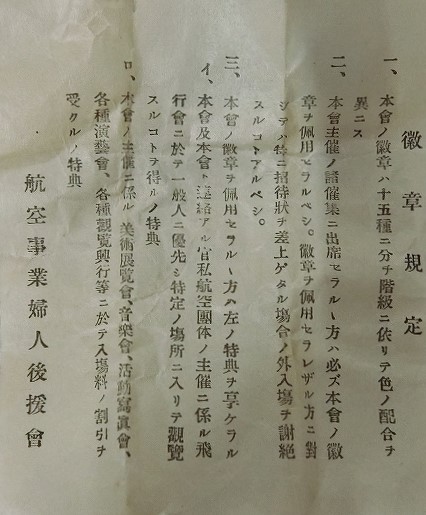 徽章規定
一、本會ノ徽章ハ十五種ニ分チ階級ニ依リテ色ノ配合ヲ
異ニス
二、本會主催ノ諸催集ニ出席セラルヽ方ハ必ズ本會ノ徽
章ヲ佩用セラルベシ。徽章ヲ佩用セラレザル方ニ對
シテハ特ニ招待狀ヲ差上ゲタル場合ノ外入場ヲ謝絶
スルコトアルベシ。
三、本會ノ徽章ヲ佩用セラルヽ方ハ左ノ特典ヲ享ケラル
イ、本會及本會ト連絡アル官私航空團体ノ主催ニ係ル飛
行會ニ於テ一般人ニ優先シ特定ノ場所ニ入リテ觀覽
スルコトヲ得ルノ特典
ロ、本會ノ主催ニ係ル美術展覽會、音樂會、活動寫眞會、
各種演藝會、各種觀覽興行等ニ於テ入場料ノ割引ヲ
受クルノ特典
航空事業婦人後援會